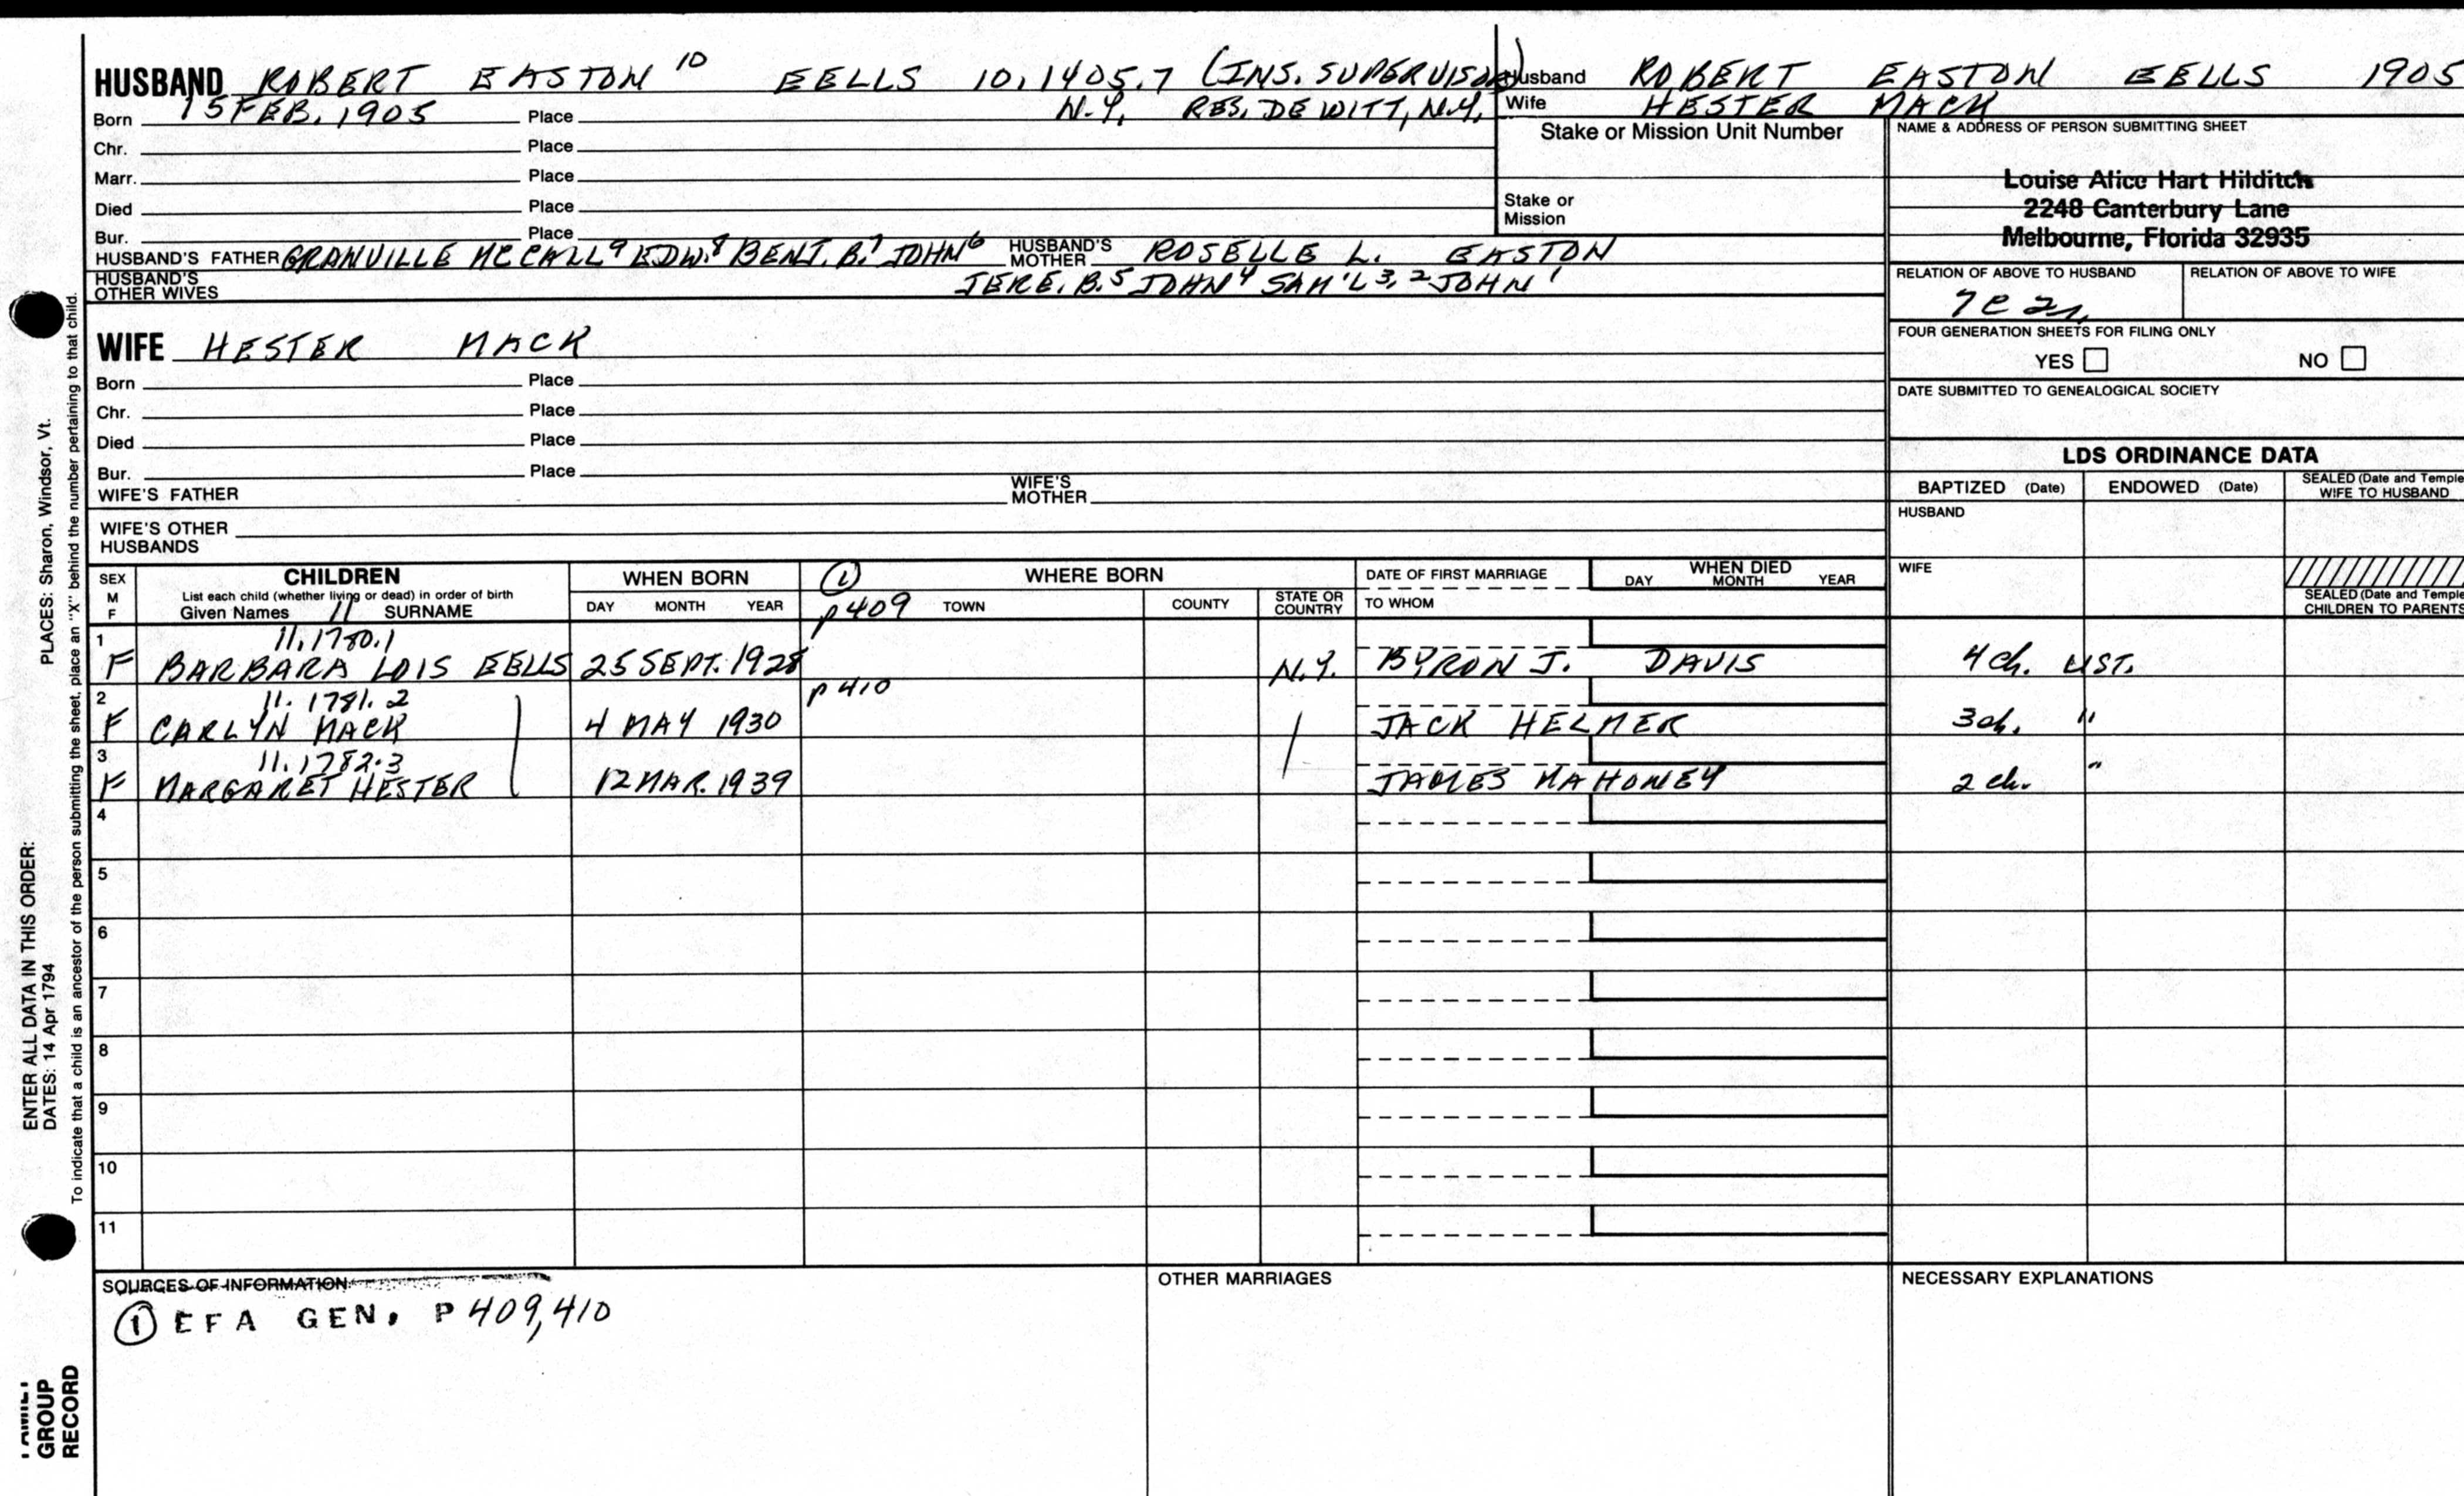 HUSBAND ROBERT EASTON 10 EELLS 10.1405.7 (INS. SUPERVISOR)
Born 15 FEB. 1905 Place N.Y. RES. DE WITT, N.Y.
Chr. Place
Marr. Place
Died Place
Bur. Place
HUSBAND'S FATHER GRANVILLE MCCALL 9 EDW. 8 BENJ. B. 7 JOHN 6 HUSBAND'S MOTHER ROSELLE L. EASTON
HUSBAND'S OTHER WIVES JERE. B. 5 JOHN 4 SAM'L 3, 2 JOHN 1
Husband ROBERT EASTON EELLS 1905
Wife HESTER MACK
Stake or Mission Unit Number
Stake or Mission
NAME & ADDRESS OF PERSON SUBMITTING SHEET
Louise Alice Hart Hilditch
2248 Canterbury Lane
Melbourne, Florida 32935
RELATION OF ABOVE TO HUSBAND RELATION OF ABOVE TO WIFE
7C 2r
FOUR GENERATION SHEETS FOR FILING ONLY
YES NO
DATE SUBMITTED TO GENEALOGICAL SOCIETY
WIFE HESTER MACK
Born Place
Chr. Place
Died Place
Bur. Place
WIFE'S FATHER WIFE'S MOTHER
WIFE'S OTHER HUSBANDS
LDS ORDINANCE DATA
BAPTIZED (Date) ENDOWED (Date) SEALED (Date and Temple WIFE TO HUSBAND
HUSBAND
WIFE
SEALED (Date and Temple CHILDREN TO PARENTS
SEX M F
CHILDREN
List each child (whether living or dead) in order of birth
Given Names 11 SURNAME
WHEN BORN
DAY MONTH YEAR
1 WHERE BORN
p 409 TOWN COUNTY STATE OR COUNTRY
DATE OF FIRST MARRIAGE
TO WHOM
WHEN DIED
DAY MONTH YEAR
1 11.1780.1
F BARBARA LOIS EELLS 25 SEPT. 1928 N.Y. BYRON J. DAVIS 4 ch. LIST.
2 11.1781.2 p 410
F CARLYN MACK 4 MAY 1930 JACK HELMER 3 ch. "
3 11.1782.3
F MARGARET HESTER 12 MAR. 1939 JAMES MAHONEY 2 ch. "
4
5
6
7
8
9
10
11
SOURCES OF INFORMATION
① EFA GEN. P 409, 410
OTHER MARRIAGES
NECESSARY EXPLANATIONS
ENTER ALL DATA IN THIS ORDER:
DATES: 14 Apr 1794
PLACES: Sharon, Windsor, Vt.
To indicate that a child is an ancestor of the person submitting the sheet, place an "X" behind the number pertaining to that child.
FAMILY
GROUP
RECORD